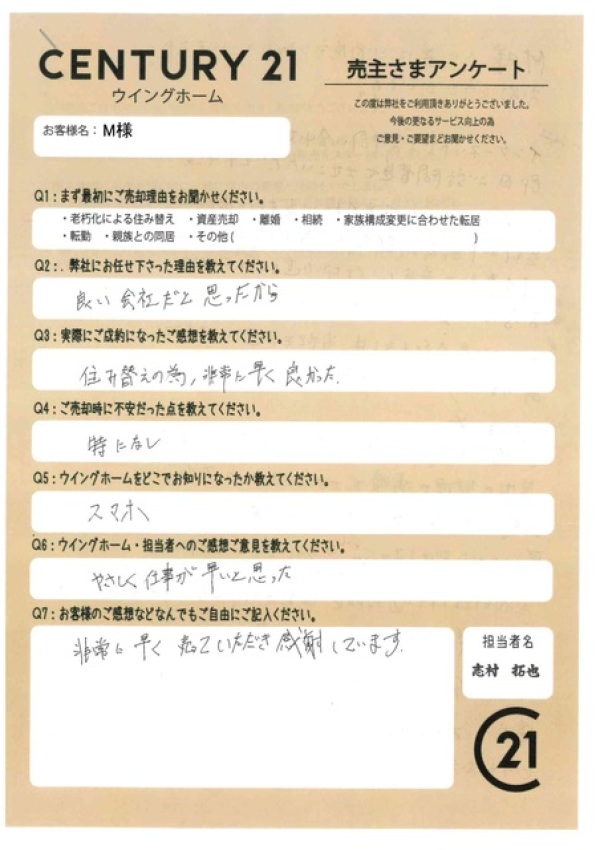 CENTURY 21
ウイングホーム
売主さまアンケート
この度は弊社をご利用頂きありがとうございました。
今後の更なるサービス向上の為
ご意見・ご要望までお聞かせください。
お客様名：M様
Q1：まず最初にご売却理由をお聞かせください。
・老朽化による住み替え ・資産売却 ・離婚 ・相続 ・家族構成変更に合わせた転居
・転勤 ・親族との同居 ・その他( )
Q2：. 弊社にお任せ下さった理由を教えてください。
良い会社だと思ったから
Q3：実際にご成約になったご感想を教えてください。
住み替えの為、非常に早く良かった.
Q4：ご売却時に不安だった点を教えてください。
特になし
Q5：ウイングホームをどこでお知りになったか教えてください。
スマホ
Q6：ウイングホーム・担当者へのご感想ご意見を教えてください。
やさしく仕事が早いと思った
Q7：お客様のご感想などなんでもご自由にご記入ください。
非常に早く売っていただき感謝しています.
担当者名
志村 拓也
21